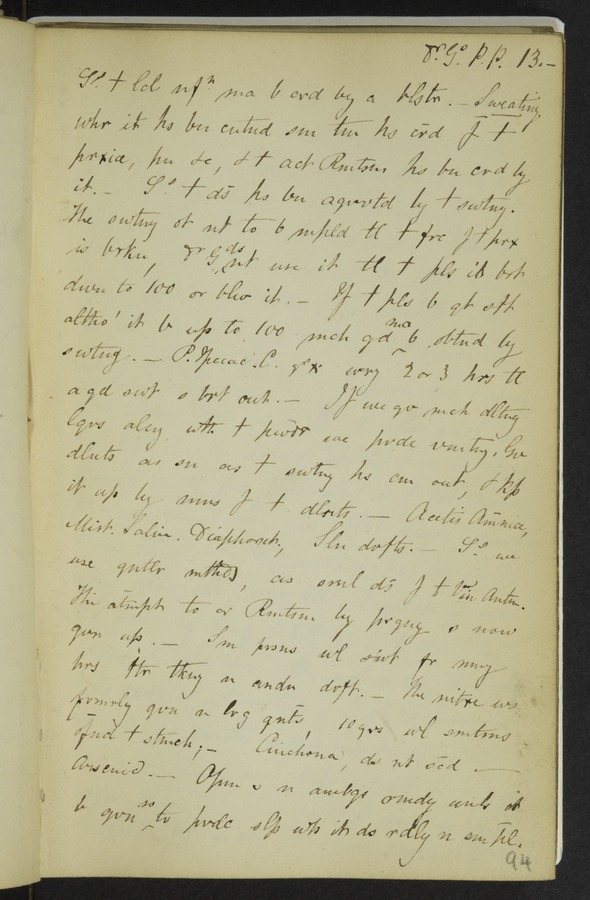 Dr. Go. P.P. 13.-
So. + lcl nfn ma b crd by a blstr. - Sweating
whr it hs bn cntnd sm tm hs crd f +
prxia, hn &c, & + act Rmtsm hs bn crd by
it. - So + ds hs bn agrvtd by + swtng.
The swtng ot nt to b mpld tl + fre f + prx
is brkn, Dr G ds nt use it tl + pls is brt
dwn to 100 or blw it. - If + pls b qt sft
altho' it b up to 100 mch gd ma b obtnd by
swtng. - P. Ipecac. C. grx evry 2 or 3 hrs tl
a gd swt s brt out. - If we gv mch dltng
lqrs alng wth + pwdr we prdc vmtng. Gv
dlnts as sn as + swtng hs cm out, & kp
it up by mns f + dlnts. - Acetis Amniæ,
Mist. Salin. Diaphoret, Sln drfts. - So we
use gntlr mthds, as sml ds f + Vin Antm.
The atmpt to cr Rmtsm by prgng s now
gvn up. - Sm prsns wl swt fr mny
hrs ftr tkng n andn drft. - The nitre ws
frmrly gvn n lrg qnts, 10 grs wl smtms
ofnd + stmch; - Cinchona, ds nt scd -
Arsenic. - Opm s n ambgs rmdy unls it
b gvn so to prdc slp wh it ds rdly n sm ppl.
94